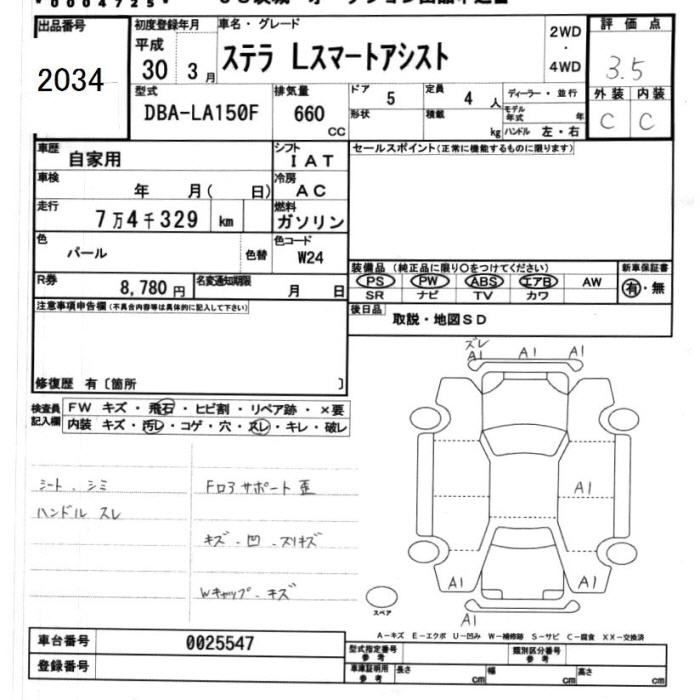 *0004725*
出品番号
2034
初度登録年月
平成
30 3月
車名・グレード
ステラ Lスマートアシスト
2WD
・
4WD
評価点
3.5
外装 内装
C C
型式
DBA-LA150F
排気量
660
CC
ドア 5
定員 4 人
形状
積載 kg
ディーラー・並行
モデル年式 年
ハンドル 左・右
車歴 自家用
シフト IAT
車検 年 月( 日)
冷房 AC
走行 7万4千329 km
燃料 ガソリン
色 パール 色替
色コード W24
R券 8,780円
名変通知期限 月 日
セールスポイント(正常に機能するものに限ります)
装備品(純正品に限り○をつけてください)
PS PW ABS エアB AW
SR ナビ TV カワ
新車保証書
有・無
後日品 取説・地図SD
注意事項申告欄(不具合内容等は具体的に記入して下さい)
修復歴 有〔箇所 〕
検査員記入欄
FW キズ・飛石・ヒビ割・リペア跡・×要
内装 キズ・汚レ・コゲ・穴・スレ・キレ・破レ
シート、シミ
ハンドル スレ
Fロアサポート歪
キズ・凹・スリキズ
Wキャップ・キズ
ズレ
A1 A1 A1
A1
A1 A1
A1
スペア
A-キズ E-エクボ U-凹み W-補修跡 S-サビ C-腐食 XX-交換済
車台番号 0025547
登録番号
型式指定番号 参考
類別区分番号 参考
車庫証明用 参考
長さ cm 幅 cm 高さ cm